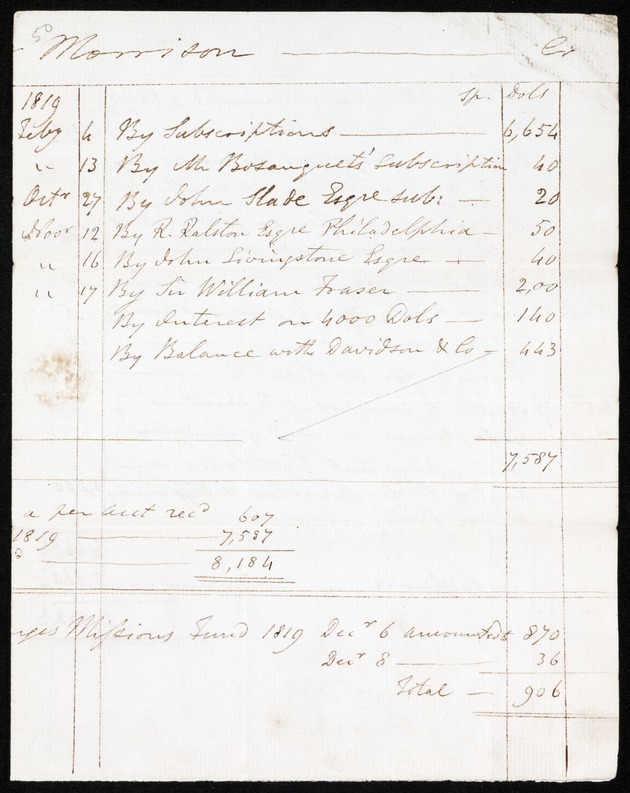 50
Morrison Cr
1819 Sp. Dols
Feby 4 By Subscriptions 6,654
" 13 By Mr Bosanquets' Subscription 40
Octr 27 By John Slade Esqre sub: 20
Novr 12 By R. Ralston Esqre Philadelphia 50
" 16 By John Livingstone Esqre 40
" 17 By Sir William Fraser 2,00
By Interest on 4000 Dols 140
By Balance with Davidson & Co 443
7,587
a per acct recd 607
1819 7,587
8,184
Missions Fund 1819 Decr 6 amounted to 870
Decr 8 36
Total 906